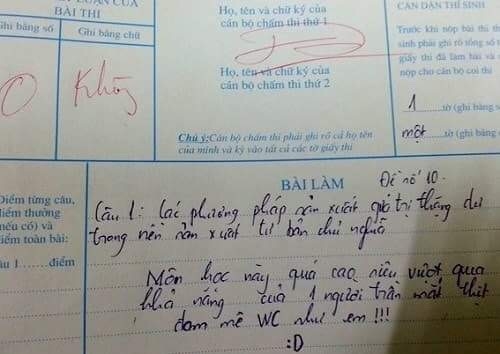 BÀI THI
Ghi bằng số
Ghi bằng chữ
0
Không
Họ, tên và chữ ký của
cán bộ chấm thi thứ 1
Họ, tên và chữ ký của
cán bộ chấm thi thứ 2
Chú ý: Cán bộ chấm thi phải ghi rõ cả họ tên
của mình và ký vào tất cả các tờ giấy thi
CĂN DẶN THÍ SINH
Trước khi nộp bài thi
sinh phải ghi rõ tổng số
giấy thi đã làm bài và
nộp cho cán bộ coi thi
1 tờ (ghi bằng
một tờ (ghi bằng
Điểm từng câu,
điểm thưởng
(nếu có) và
điểm toàn bài:
Câu 1......điểm
BÀI LÀM
Đề số 10.
Câu 1: Các phương pháp sản xuất giá trị thặng dư
trong nền sản xuất tư bản chủ nghĩa
Môn học này quá cao siêu vượt qua
khả năng của 1 người trần mắt thịt
đam mê WC như em !!!
:D